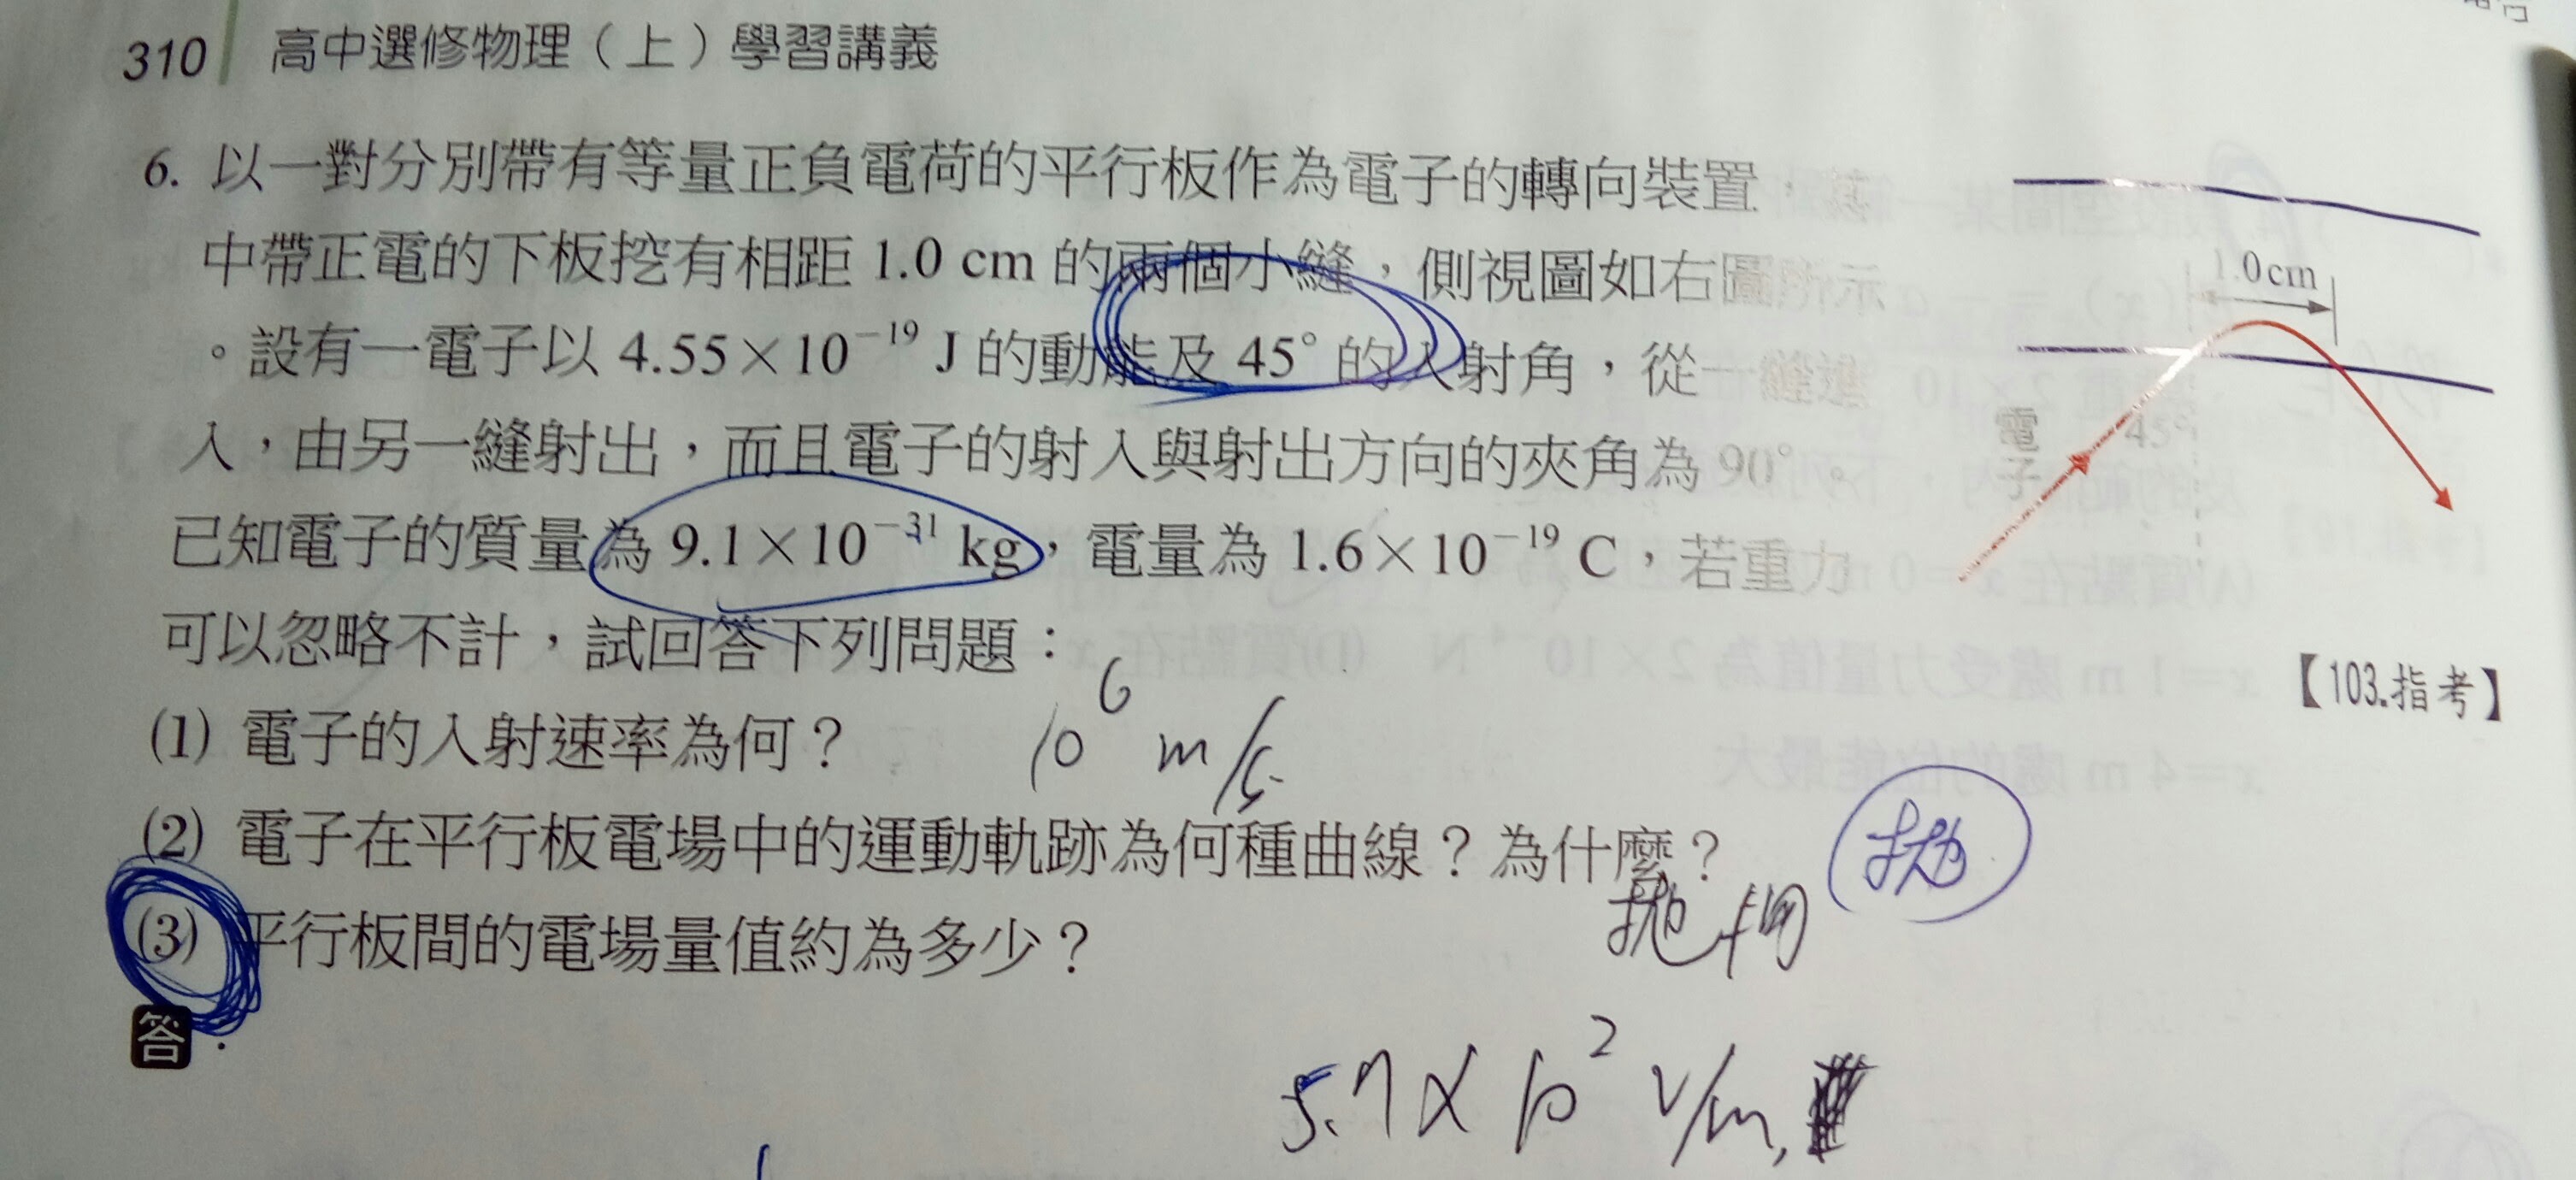 310 高中選修物理（上）學習講義
6. 以一對分別帶有等量正負電荷的平行板作為電子的轉向裝置，其
中帶正電的下板挖有相距 1.0 cm 的兩個小縫，側視圖如右圖所示
。設有一電子以 4.55×10⁻¹⁹ J 的動能及 45° 的入射角，從一縫進
入，由另一縫射出，而且電子的射入與射出方向的夾角為 90°。
已知電子的質量為 9.1×10⁻³¹ kg，電量為 1.6×10⁻¹⁹ C，若重力
可以忽略不計，試回答下列問題：
1.0 cm
電子
45°
【103.指考】
(1) 電子的入射速率為何？ 10⁶ m/s
(2) 電子在平行板電場中的運動軌跡為何種曲線？為什麼？ 拋
拋物
(3) 平行板間的電場量值約為多少？
答：
5.7×10² V/m